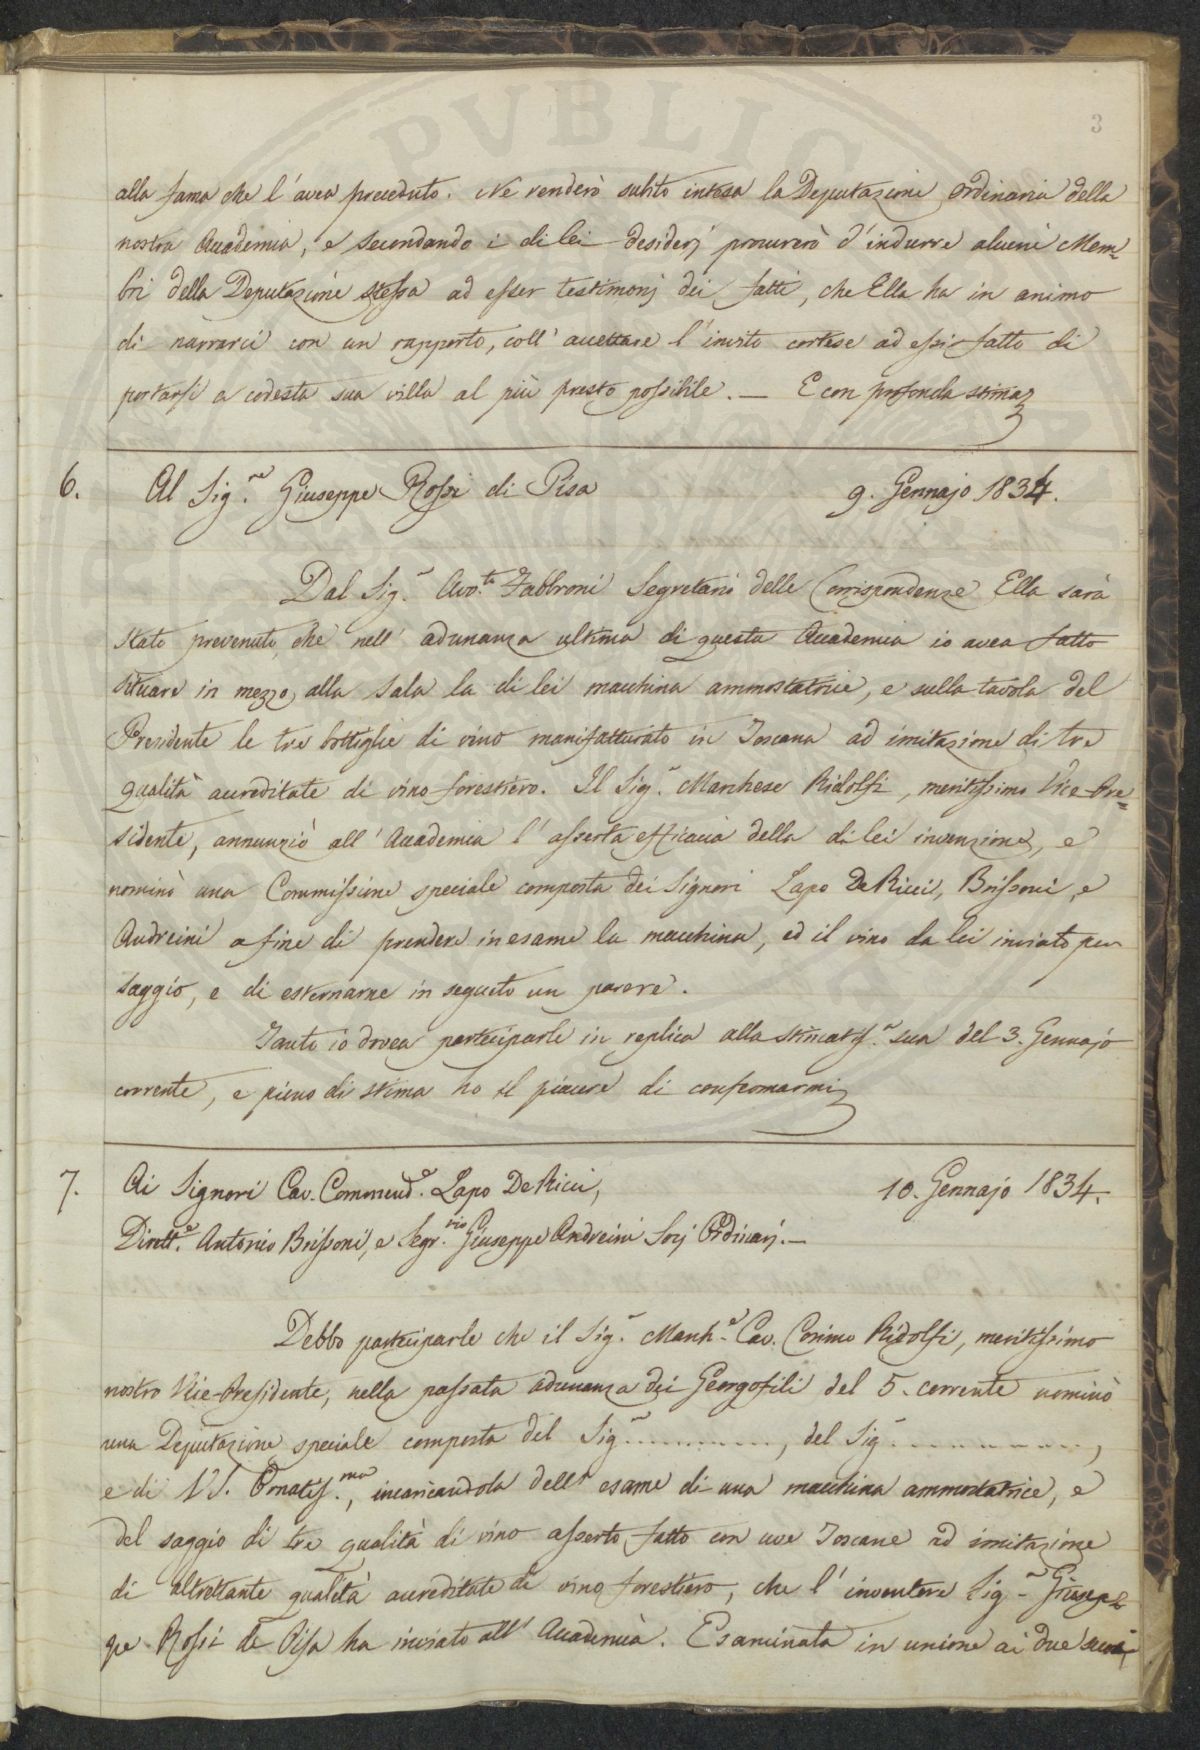 PVBLIC
3
alla fama che l'avea preceduto. Ne renderò subito intesa la Deputazione Ordinaria della
nostra Accademia, e secondando i di lei desiderj procurerò d'indurre alcuni Mem=
bri della Deputazione stessa ad esser testimonj dei fatti, che Ella ha in animo
di narrarci con un rapporto, coll'accettare l'invito cortese ad essi fatto di
portarsi a codesta sua villa al più presto possibile. — E con profonda stima
6. Al Sig.re Giuseppe Rossi di Pisa 9. Gennajo 1834.
Dal Sig.r Avv.to Fabbroni Segretario delle Corrispondenze Ella sarà
stato prevenuto, che nell'adunanza ultima di questa Accademia io avea fatto
situare in mezzo alla Sala la di lei macchina ammostatrice, e sulla tavola del
Presidente le tre bottiglie di vino manifatturato in Toscana ad imitazione di tre
qualità accreditate di vino forestiero. Il Sig.r Marchese Ridolfi, meritissimo Vice-Pre=
sidente, annunziò all'Accademia l'asserta efficacia della di lei invenzione, e
nominò una Commissione speciale composta dei Signori Lapo De Ricci, Brissoni, e
Andreini a fine di prendere in esame la macchina, ed il vino da lei inviato per
saggio, e di esternarne in seguito un parere.
Tanto io dovea parteciparle in replica alla stimatis.a sua del 3. Gennajo
corrente, e pieno di stima ho il piacere di confermarmi
7. Ai Signori Cav. Commend.e Lapo De Ricci, 10. Gennajo 1834.
Dirett.e Antonio Brissoni, e Segr.rio Giuseppe Andreini Socj Ordinarj. —
Debbo parteciparle che il Sig.r March.e Cav. Cosimo Ridolfi, meritissimo
nostro Vice-Presidente, nella passata adunanza dei Georgofili del 5. corrente nominò
una Deputazione speciale composta del Sig.r ..........., del Sig.r ...........,
e di V.S. Ornatis.ma, incaricandola dell'esame di una macchina ammostatrice, e
del saggio di tre qualità di vino asserto fatto con uve Toscane ad imitazione
di altrettante qualità accreditate di vino forestiero, che l'inventore Sig.r Giusep=
pe Rossi di Pisa ha inviato all'Accademia. Esaminata in unione ai due suoi